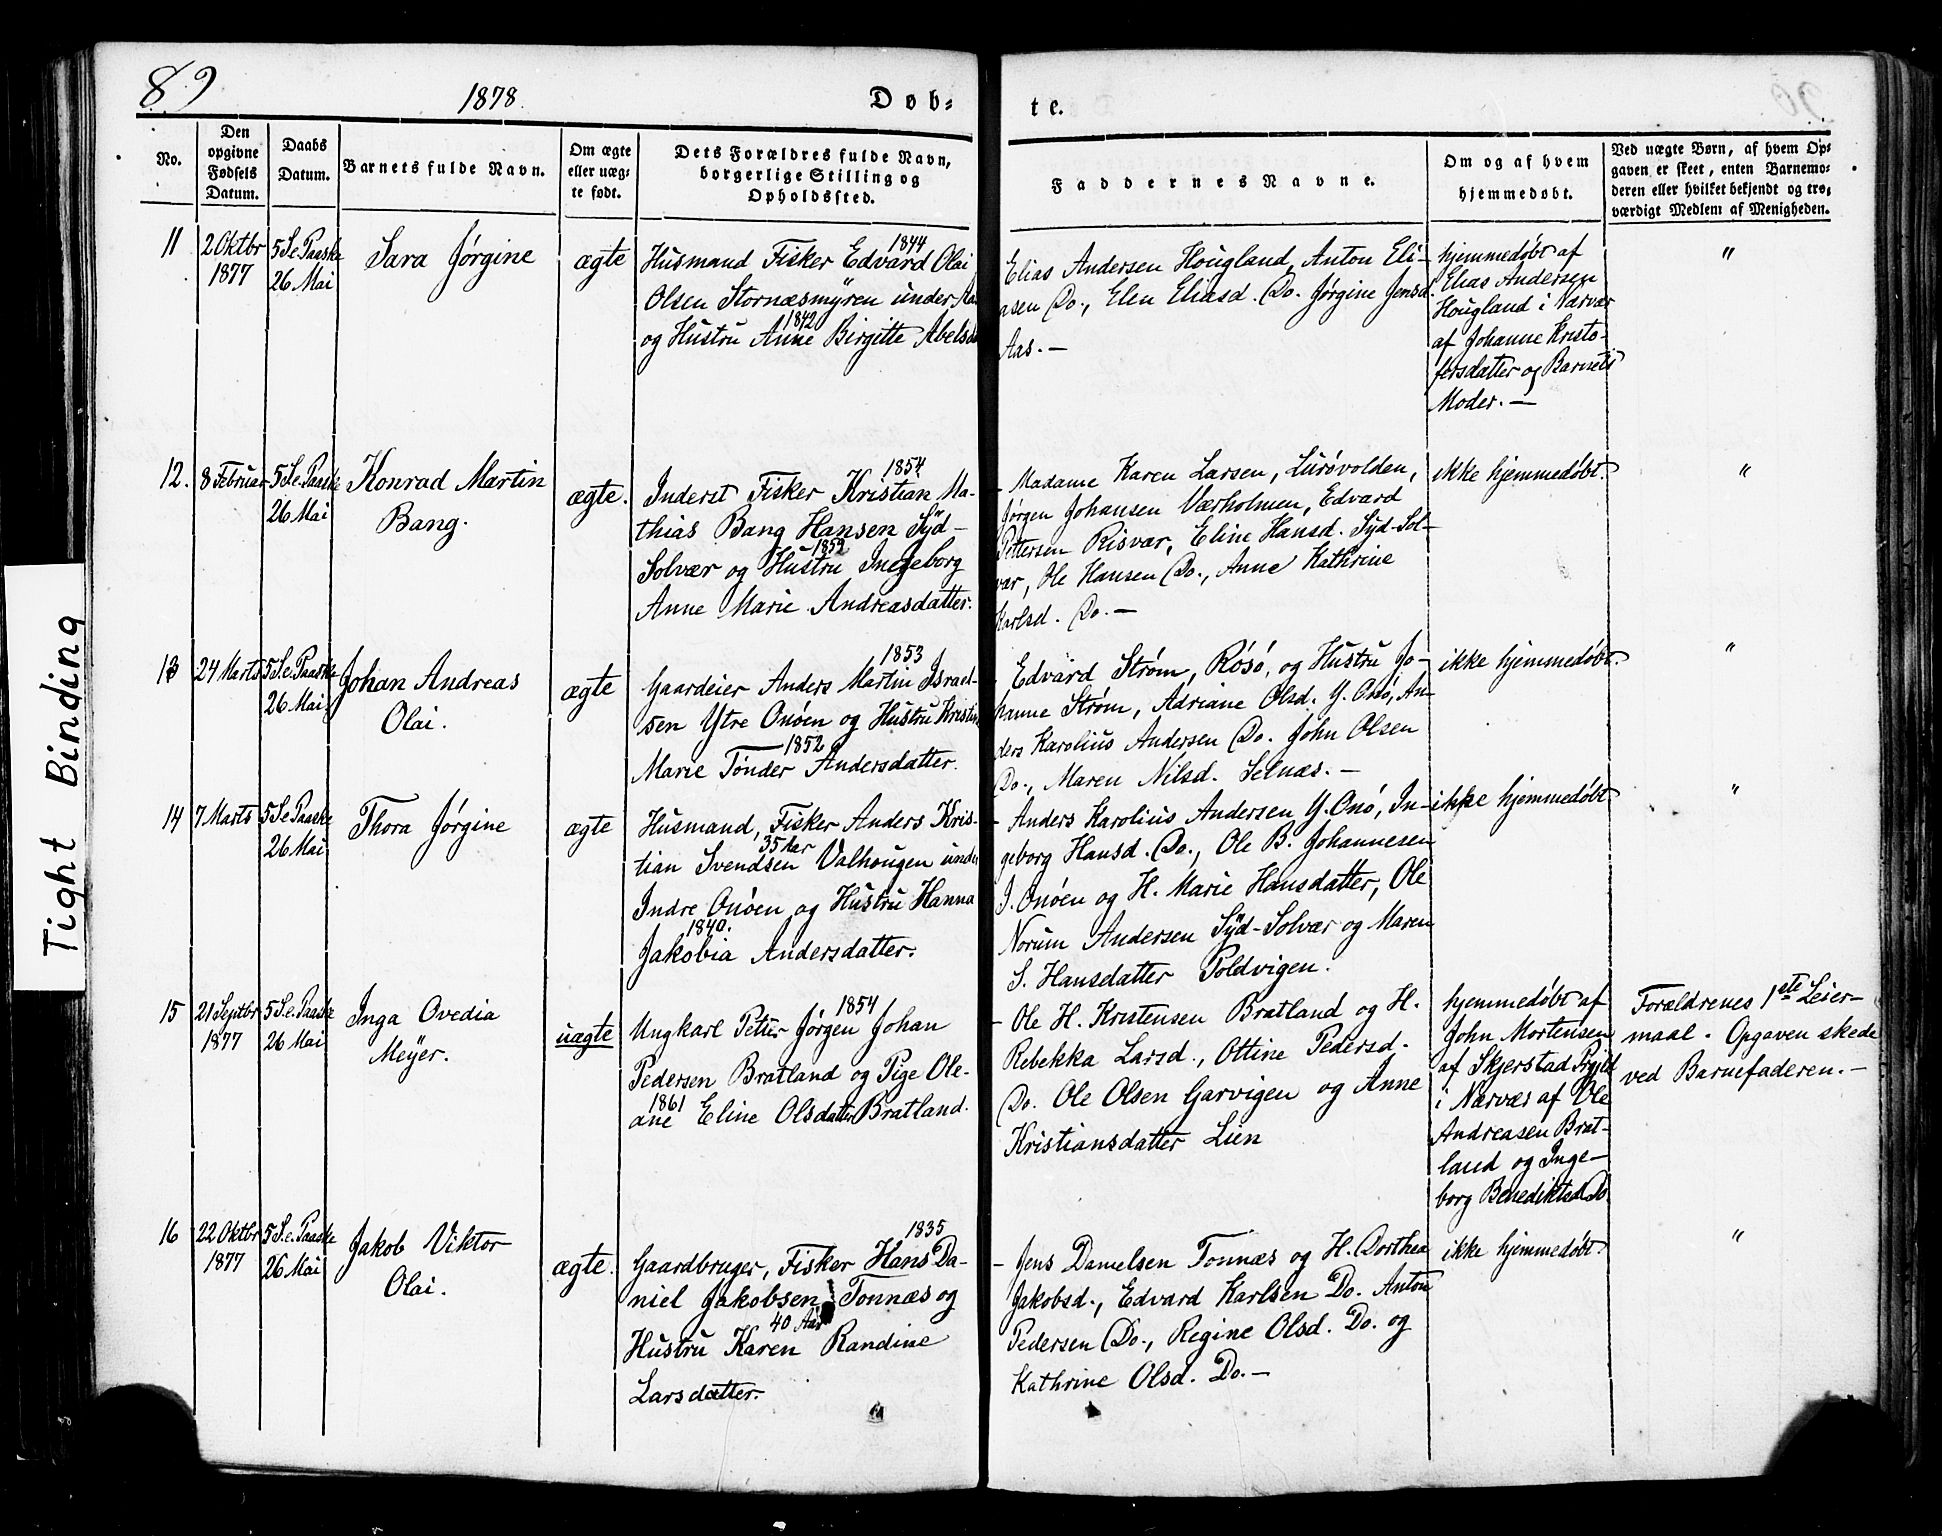 89
1878.
Døb-
te.
No.
Den
opgivne
Fødsels
Datum.
Daabs
Datum.
Barnets fulde Navn.
Om ægte
eller uæg-
te født.
Dets Forældres fulde Navn,
borgerlige Stilling og
Opholdssted.
Faddernes Navne.
Om og af hvem
hjemmedøbt.
Ved uægte Børn, af hvem Op-
gaven er skeet, enten Barnemo-
deren eller hvilket bekjendt og tro-
værdigt Medlem af Menigheden.
11
2 Oktbr
1877
5 S. e. Paaske
26 Mai
Sara Jørgine
ægte
1844
Husmand Fisker Edvard Olai
Olsen Stornæsmyren under
1842
og Hustru Anne Birgitte
Elias Andersen Hougland, Anton Eli-
asen Do., Elen Eliasd. Do. Jørgine Jensd.
Aas. —
hjemmedøbt af
Elias Andersen
Hougland i Nærvær
af Johanne Kristo-
fersdatter og Barnets
Moder. —
"
12.
8 Februar
5 S. e. Paaske
26 Mai
Konrad Martin
Bang.
ægte.
1854
Inderst Fisker Kristian Ma-
thias Bang Hansen Syd-
1852
Solvær og Hustru Ingeborg
Anne Marie Andreasdatter.
- Madame Karen Larsen, Lurøvolden,
Jørgen Johansen Værholmen, Edvard
Pettersen Risvær, Eline Hansd. Syd-Sol-
vær, Ole Hansen Do., Anne Kathrine
Karlsd. Do. —
ikke hjemmedøbt.
"
13
24 Marts
5 S. e. Paaske
26 Mai
Johan Andreas
Olai.
ægte
1853
Gaardeier Anders Martin Israel-
sen Ytre Onøen og Hustru Kristine
1852
Marie Tønder Andersdatter.
- Edvard Strøm, Røsø, og Hustru Jo-
hanne Strøm, Adriane Olsd. Y. Onø, An-
ders Karolius Andersen Do. John Olsen
Do., Maren Nilsd. Selnæs. —
ikke hjemmedøbt.
"
14
7 Marts
5 S. e. Paaske
26 Mai
Thora Jørgine
ægte
Husmand, Fisker Anders Kris-
35 Aar
tian Svendsen Valhougen under
Indre Onøen og Hustru Hanna
1840.
Jakobia Andersdatter.
- Anders Karolius Andersen Y. Onø, In-
geborg Hansd. Do., Ole B. Johannesen
I. Onøen og H. Marie Hansdatter, Ole
Norum Andersen Syd-Solvær og Maren
S. Hansdatter Poldvigen.
ikke hjemmedøbt
"
15
21 Septbr
1877
5 S. e. Paaske
26 Mai
Inga Ovedia
Meyer.
uægte
1854
Ungkarl Petter Jørgen Johan
Pedersen Bratland og Pige Ole-
1861
ane Eline Olsdatter Bratland.
- Ole H. Kristensen Bratland og H.
Rebekka Larsd., Ottine Pedersd.
Do. Ole Olsen Garvigen og Anne
Kristiansdatter Lien
hjemmedøbt af
John Mortensen
af Skjerstad Prgjld
i Nærvær af Ole
Andreasen Brat-
land og Inge-
borg Benediktsd. Do
Forældrenes 1ste Leier-
maal. Opgaven skede
ved Barnefaderen. —
16
22 Oktbr
1877
5 S. e. Paaske
26 Mai
Jakob Viktor
Olai.
ægte.
1835
Gaardbruger, Fisker Hans Da-
niel Jakobsen Tonnæs og
40 Aar
Hustru Karen Randine
Larsdatter.
- Jens Danielsen Tonnæs og H. Dorthea
Jakobsd., Edvard Karlsen Do. Anton
Pedersen Do., Regine Olsd. Do. og
Kathrine Olsd. Do. —
ikke hjemmedøbt.
"
Tight Binding